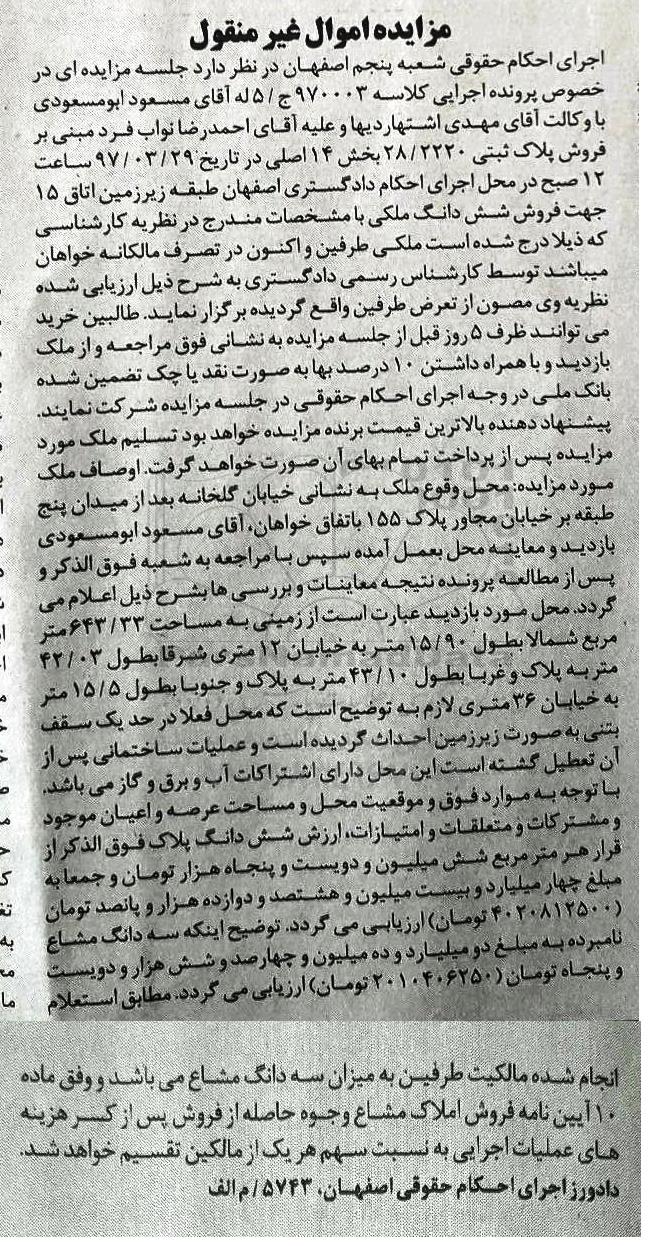 مزایده اموال غیر منقول
اجرای احکام حقوقی شعبه پنجم اصفهان در نظر دارد جلسه مزایده ای در
خصوص پرونده اجرایی کلاسه ۹۷۰۰۰۳ ج/۵ له آقای مسعود ابومسعودی
با وکالت آقای مهدی اشتهاردیها و علیه آقای احمدرضا نواب فرد مبنی بر
فروش پلاک ثبتی ۲۸/۲۲۲۰ بخش ۱۴ اصلی در تاریخ ۹۷/۰۳/۲۹ ساعت
۱۲ صبح در محل اجرای احکام دادگستری اصفهان طبقه زیرزمین اتاق ۱۵
جهت فروش شش دانگ ملکی با مشخصات مندرج در نظریه کارشناسی
که ذیلا درج شده است ملکی طرفین و اکنون در تصرف مالکانه خواهان
میباشد توسط کارشناس رسمی دادگستری به شرح ذیل ارزیابی شده
نظریه وی مصون از تعرض طرفین واقع گردیده برگزار نماید. طالبین خرید
می توانند ظرف ۵ روز قبل از جلسه مزایده به نشانی فوق مراجعه و از ملک
بازدید و با همراه داشتن ۱۰ درصد بها به صورت نقد یا چک تضمین شده
بانک ملی در وجه اجرای احکام حقوقی در جلسه مزایده شرکت نمایند.
پیشنهاد دهنده بالاترین قیمت برنده مزایده خواهد بود تسلیم ملک مورد
مزایده پس از پرداخت تمام بهای آن صورت خواهد گرفت. اوصاف ملک
مورد مزایده: محل وقوع ملک به نشانی خیابان گلخانه بعد از میدان پنج
طبقه بر خیابان مجاور پلاک ۱۵۵ باتفاق خواهان، آقای مسعود ابومسعودی
بازدید و معاینه محل بعمل آمده سپس با مراجعه به شعبه فوق الذکر و
پس از مطالعه پرونده نتیجه معاینات و بررسی ها بشرح ذیل اعلام می
گردد. محل مورد بازدید عبارت است از زمینی به مساحت ۶۴۳/۳۳ متر
مربع شمالا بطول ۱۵/۹۰ متر به خیابان ۱۲ متری شرقا بطول ۴۲/۰۳
متر به پلاک و غربا بطول ۴۳/۱۰ متر به پلاک و جنوبا بطول ۱۵/۵ متر
به خیابان ۳۶ متری لازم به توضیح است که محل فعلا در حد یک سقف
بتنی به صورت زیرزمین احداث گردیده است و عملیات ساختمانی پس از
آن تعطیل گشته است این محل دارای اشتراکات آب و برق و گاز می باشد.
با توجه به موارد فوق و موقعیت محل و مساحت عرصه و اعیان موجود
و مشترکات و متعلقات و امتیازات، ارزش شش دانگ پلاک فوق الذکر از
قرار هر متر مربع شش میلیون و دویست و پنجاه هزار تومان و جمعا به
مبلغ چهار میلیارد و بیست میلیون و هشتصد و دوازده هزار و پانصد تومان
(۴۰۲۰۸۱۲۵۰۰ تومان) ارزیابی می گردد. توضیح اینکه سه دانگ مشاع
نامبرده به مبلغ دو میلیارد و ده میلیون و چهارصد و شش هزار و دویست
و پنجاه تومان (۲۰۱۰۴۰۶۲۵۰ تومان) ارزیابی می گردد. مطابق استعلام
انجام شده مالکیت طرفین به میزان سه دانگ مشاع می باشد و وفق ماده
۱۰ آیین نامه فروش املاک مشاع وجوه حاصله از فروش پس از کسر هزینه
های عملیات اجرایی به نسبت سهم هر یک از مالکین تقسیم خواهد شد.
دادورز اجرای احکام حقوقی اصفهان. ۵۷۴۳/م الف